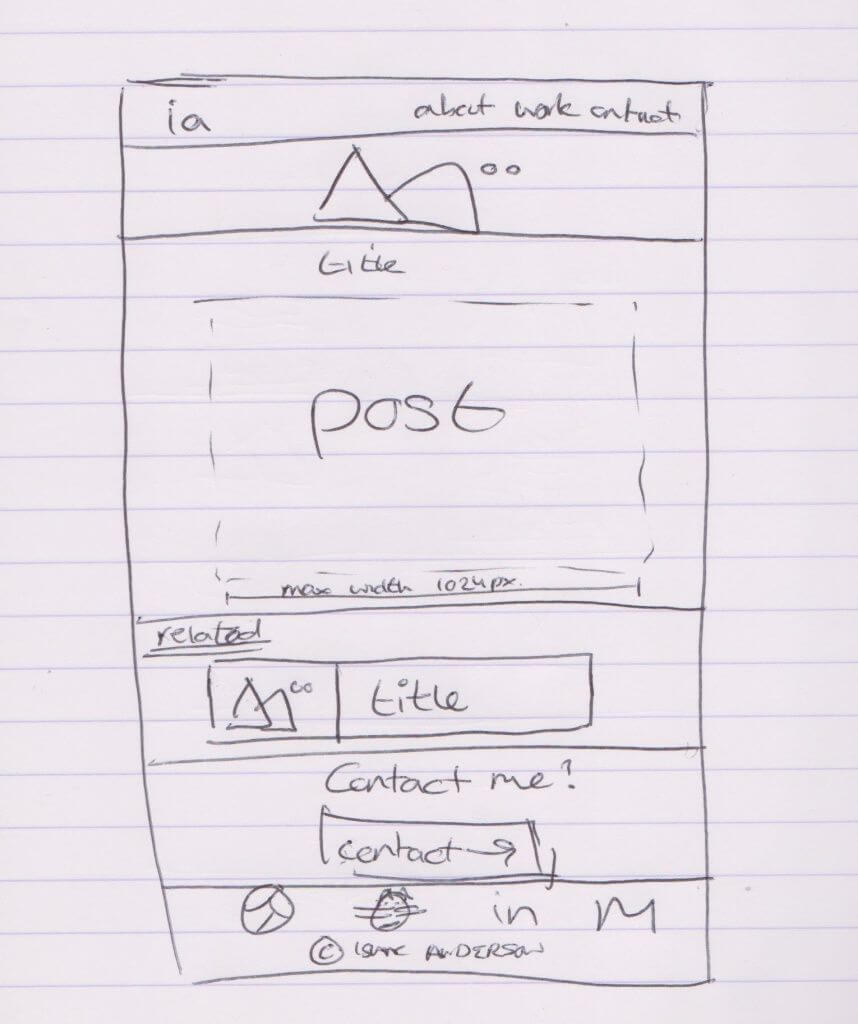 ia
about work contact
title
post
max width 1024px.
related
title
Contact me?
contact →
in M
© ISAAC ANDERSON